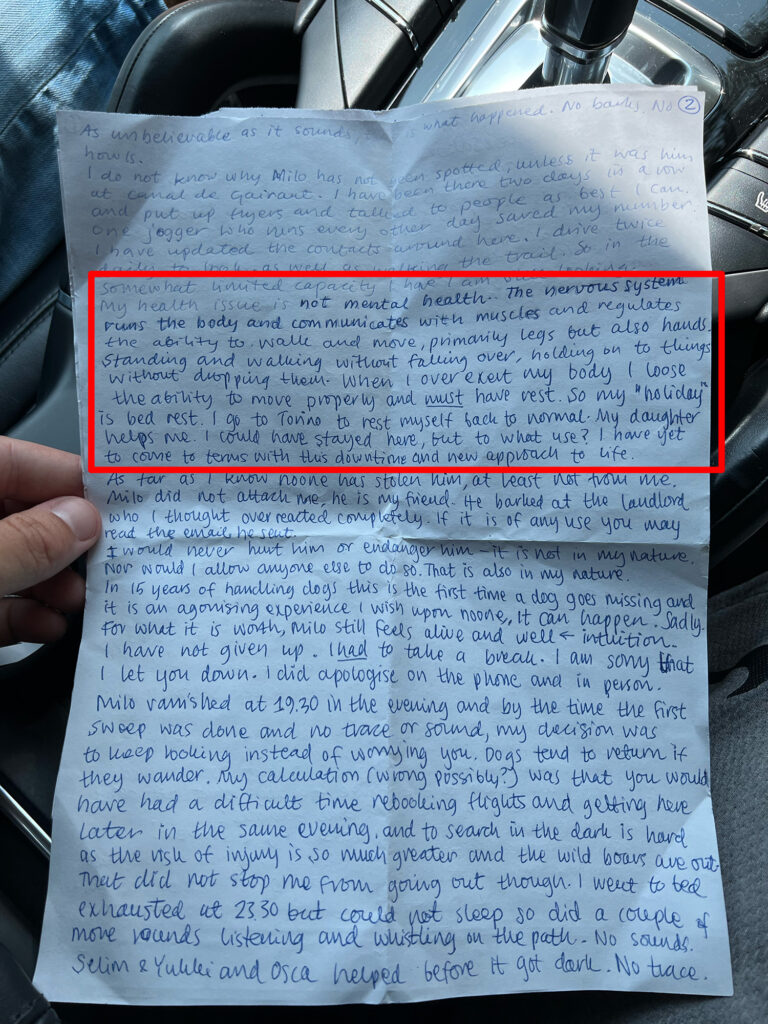 As unbelievable as it sounds, is what happened. No barks, No ②
howls.
I do not know why Milo has not been spotted, unless it was him
at Canal de Gairaut. I have been there two days in a row
and put up flyers and talked to people as best I can.
One jogger who runs every other day saved my number.
I have updated the contacts around here. I drive twice
daily to look as well as walking the trail. So in the
somewhat limited capacity I have I am looking.
My health issue is not mental health. The nervous system
runs the body and communicates with muscles and regulates
the ability to walk and move, primarily legs but also hands.
Standing and walking without falling over, holding on to things
without dropping them. When I over exert my body I loose
the ability to move properly and must have rest. So my "holiday"
is bed rest. I go to Torino to rest myself back to normal. My daughter
helps me. I could have stayed here, but to what use? I have yet
to come to terms with this downtime and new approach to life.
As far as I know noone has stolen him, at least not from me.
Milo did not attack me, he is my friend. He barked at the landlord
who I thought over reacted completely. If it is of any use you may
read the email he sent.
I would never hurt him or endanger him – it is not in my nature.
Nor would I allow anyone else to do so. That is also in my nature.
In 15 years of handling dogs this is the first time a dog goes missing and
it is an agonising experience I wish upon noone. It can happen. Sadly.
For what it is worth, Milo still feels alive and well ← intuition.
I have not given up. I had to take a break. I am sorry that
I let you down. I did apologise on the phone and in person.
Milo vanished at 19.30 in the evening and by the time the first
sweep was done and no trace or sound, my decision was
to keep looking instead of worrying you. Dogs tend to return if
they wander. My calculation (wrong possibly?) was that you would
have had a difficult time rebooking flights and getting here
later in the same evening, and to search in the dark is hard
as the risk of injury is so much greater and the wild boars are out.
That did not stop me from going out though. I went to bed
exhausted at 23.30 but could not sleep so did a couple of
more rounds listening and whistling on the path. No sounds.
Selim & Yukki and Osca helped before it got dark. No trace.